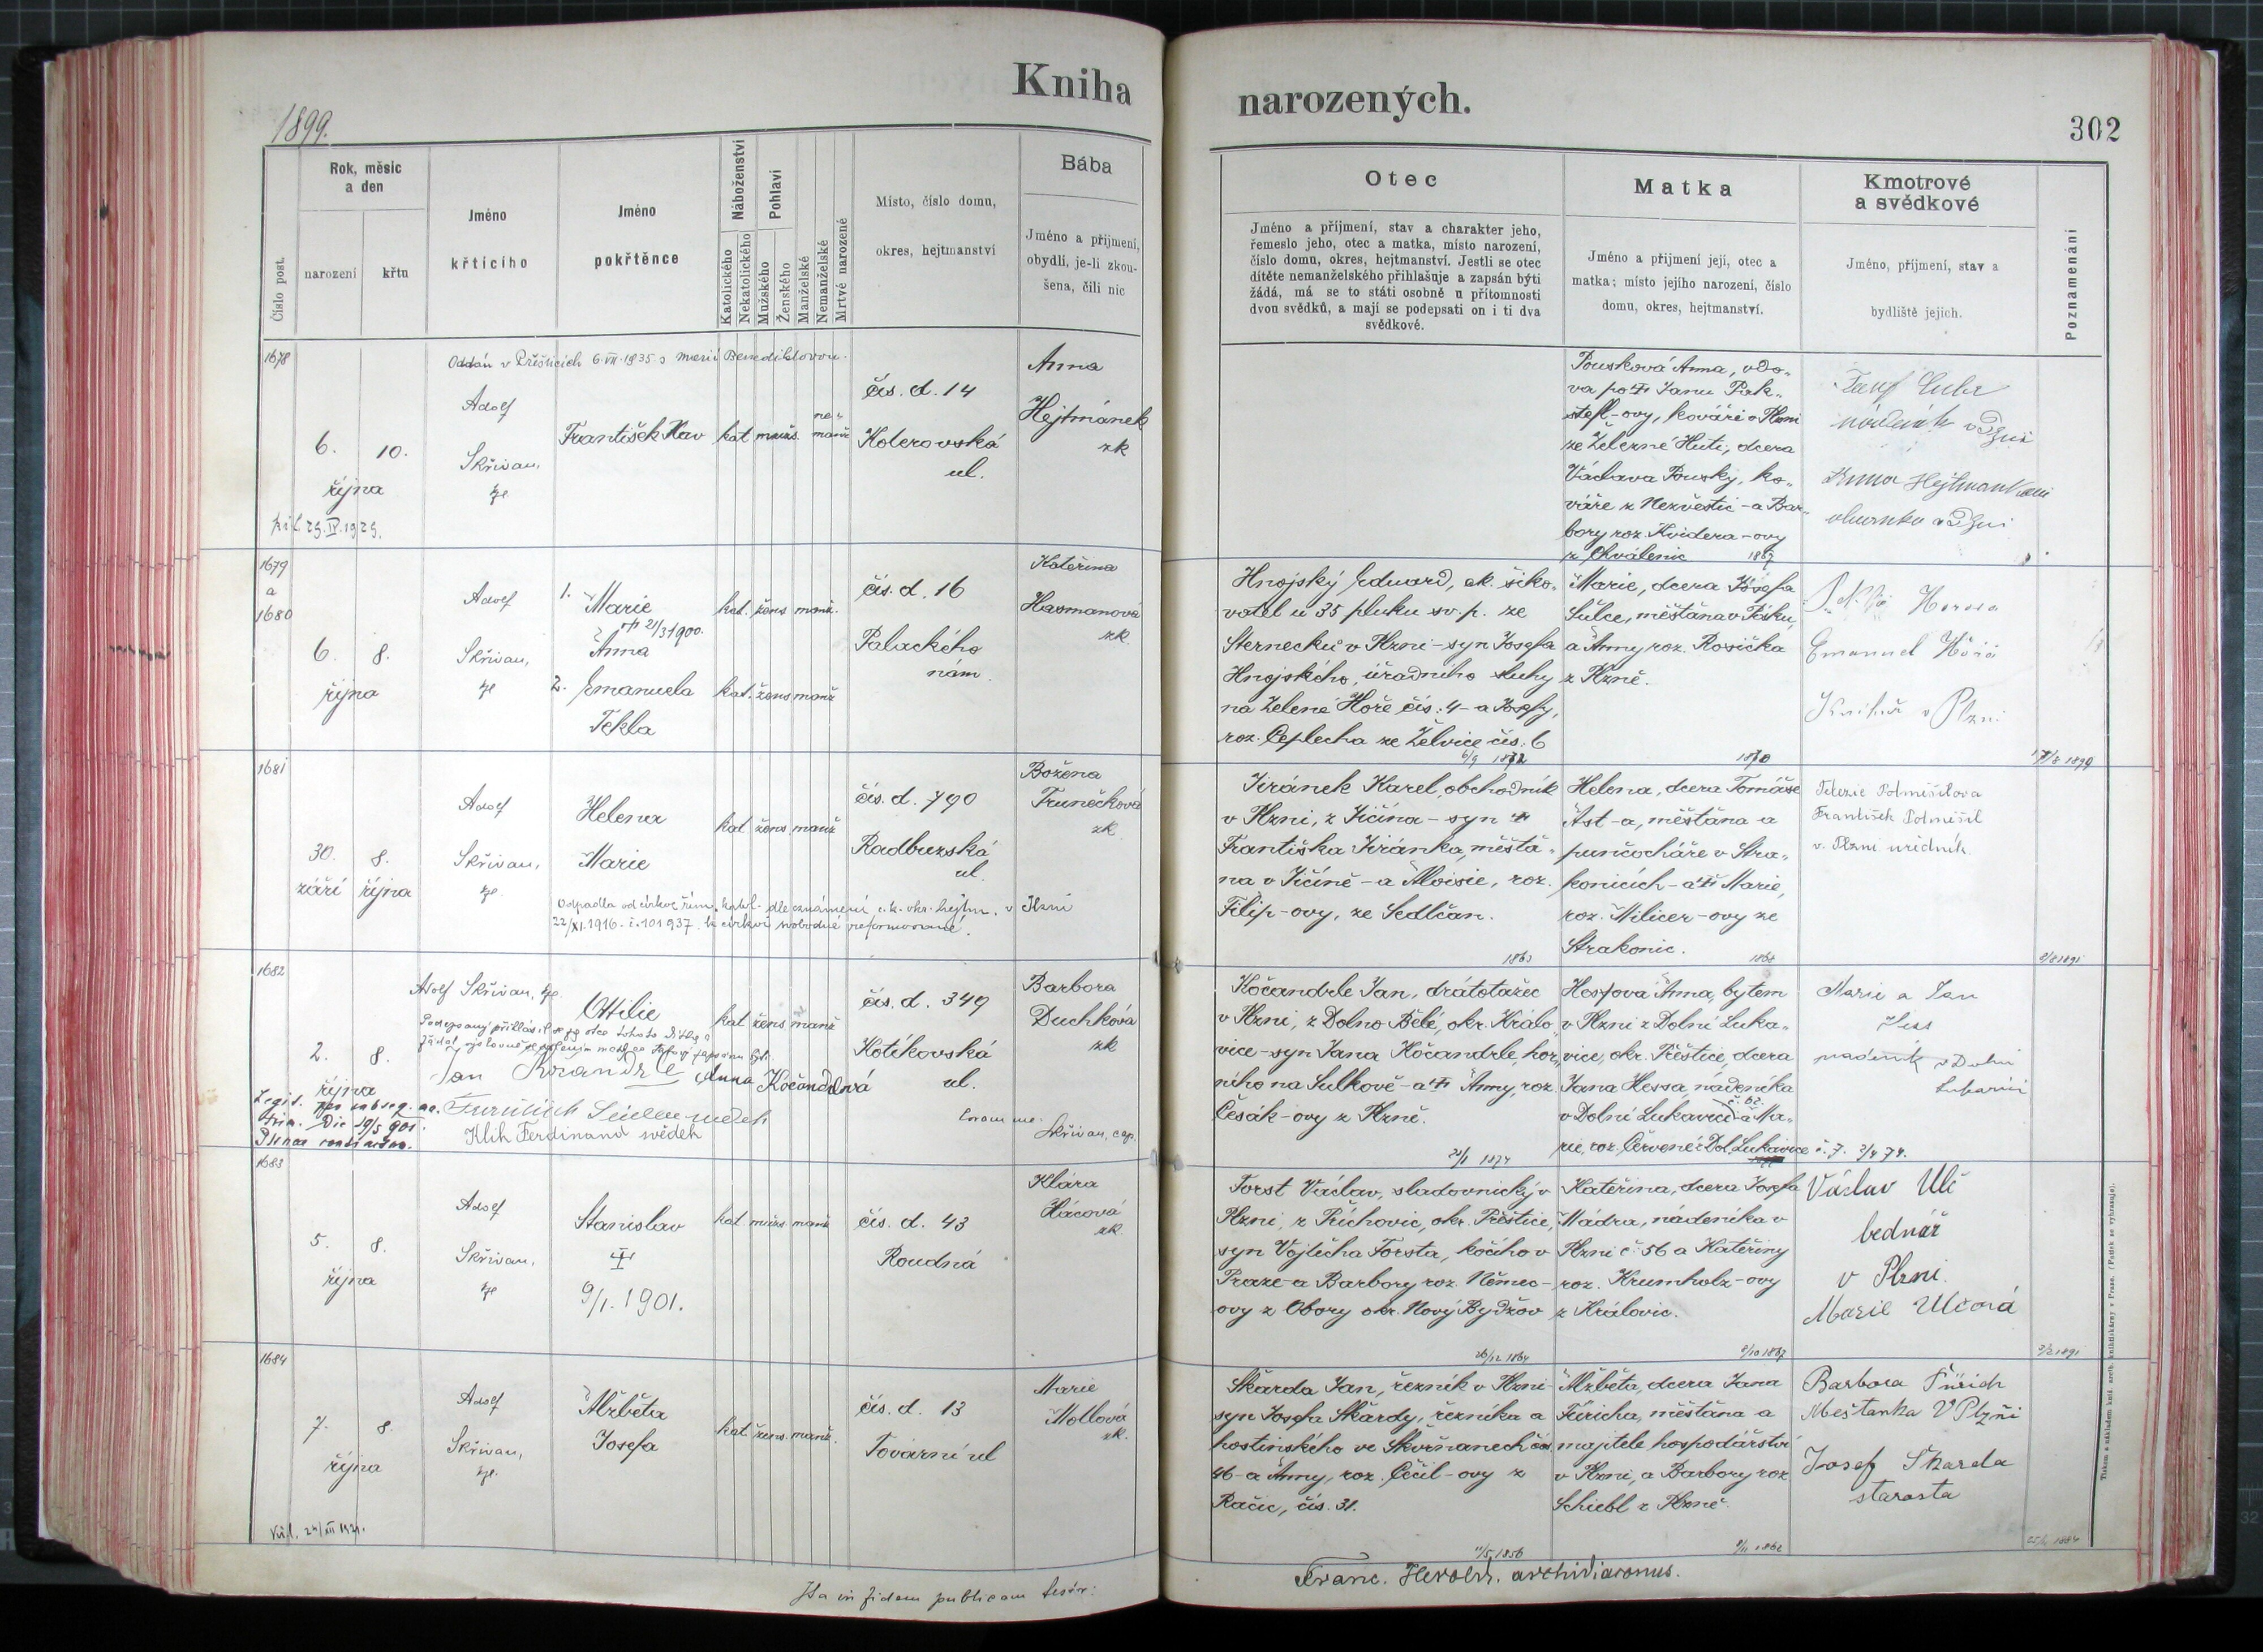 Kniha
narozených.
1899.
302
Číslo post.
Rok, měsíc
a den
narození
křtu
Jméno
křtícího
Jméno
pokřtěnce
Náboženství
Katolického
Nekatolického
Pohlaví
Mužského
Ženského
Manželské
Nemanželské
Mrtvě narozené
Místo, číslo domu,
okres, hejtmanství
Bába
Jméno a příjmení,
obydlí, je-li zkou-
šena, čili nic
Otec
Jméno a příjmení, stav a charakter jeho,
řemeslo jeho, otec a matka, místo narození,
číslo domu, okres, hejtmanství. Jestli se otec
dítěte nemanželského přihlašuje a zapsán býti
žádá, má se to státi osobně u přítomnosti
dvou svědků, a mají se podepsati on i ti dva
svědkové.
Matka
Jméno a příjmení její, otec a
matka; místo jejího narození, číslo
domu, okres, hejtmanství.
Kmotrové
a svědkové
Jméno, příjmení, stav a
bydliště jejich.
Poznamenání
1678
Oddán v Přešticích 6.VII.1935 s Marií Benediktovou.
6. 10.
října
29.IV.1929.
Adolf
Skřivan,
František
kat mužs. ne-
manž
čís. d. 14
Koterovská
ul.
Anna
Hejtmánek
zk
Pousková Anna, vdo-
va po Janu
ovy, kováři v Plzni
ze Železné Huti, dcera
Václava Pousky, ko-
váře z Nezvěstic - a Bar-
bory roz. Kvidera-ovy
z Chválenic 1867
Anna
1679
a
1680
6. 8.
října
Adolf
Skřivan,
1. Marie
21/3 1900.
Anna
2. Emanuela
Tekla
kat. žens manž.
kat. žens manž
čís. d. 16
Palackého
nám.
Kateřina
Hasmanová
zk.
Hnojský Eduard, ok. šiko-
vatel u 35 pluku sv. p. ze
Sternecků v Plzni - syn Josefa
Hnojského, úřadního sluhy
na Zelené Hoře čís. 4 - a Josefy,
roz. Ceplecha ze Želvice čís. 6
6/9 1872
Marie, dcera Josefa
Šulce, měšťana v Písku,
a Anny roz. Rosička
z Plzně.
1870
Emanuel
Knihař v Plzni
1899
1681
30. 8.
září října
Adolf
Skřivan,
Helena
Marie
kat žens manž
čís. d. 790
Radbuzská
ul.
Božena
Trunečková
zk.
Odpadla od církve řím. katol. dle oznámení c.k. okr. hejtm. v Plzni
22/XI.1916. č.101937. k církvi svobodné reformované.
Jiránek Karel, obchodník
v Plzni, z Jičína - syn
Františka Jiránka, měšťa-
na v Jičíně - a Aloisie, roz.
Filip-ovy, ze Sedlčan.
1863
Helena, dcera Tomáše
Ast-a, měšťana a
punčocháře v Stra-
konicích - a Marie,
roz. Milicer-ovy ze
Strakonic.
1868
Terezie Potměšilova
František Potměšil
v Plzni úředník
1682
2. 8.
října
Adolf Skřivan,
Ottilie
kat žens manž
čís. d. 349
Kotíkovská
ul.
Barbora
Duchková
zk
Anna Kočandrlová
Klik Ferdinand svědek
Coram me:
Skřivan, cap.
Legit. per subseq. ma.
Die 19/5 901.
Kočandrle Jan, drátotažec
v Plzni, z Dolno Bělé, okr. Králo-
vice - syn Jana Kočandrle, hor-
ního na Sulkově - a Anny, roz.
Česák-ovy z Plzně.
1874
Hessova Anna, bytem
v Plzni z Dolní Luka-
vice, okr. Přeštice, dcera
Jana Hessa, nádeníka
v Dolní Lukavici a Ma-
rie, roz. Červené z Dol. Lukavice č. 7. 2/4 74.
Marie a Jan
Hess
nádeník v Dolní
Lukavici
1683
5. 8.
října
Adolf
Skřivan,
Stanislav
9/1. 1901.
kat. mužs manž
čís. d. 43
Roudná
Klára
Hácová
zk.
Forst Václav, sladovnický v
Plzni, z Příchovic, okr. Přeštice,
syn Vojtěcha Forsta, kočího v
Praze - a Barbory roz. Němec-
ovy z Obory okr. Nový Bydžov
26/12 1864
Kateřina, dcera Josefa
Mádra, nádeníka v
Plzni č. 56 a Kateřiny
roz. Krumholz-ovy
z Královic.
9/10 1867
Václav Ulč
bednář
v Plzni.
Marie Ulčová
1684
7. 8.
října
24/XII 1921.
Adolf
Skřivan,
Alžběta
Josefa
kat žens. manž.
čís. d. 13
Tovární ul
Marie
Mollová
zk.
Škarda Jan, řezník v Plzni
syn Josefa Škardy, řezníka a
hostinského ve Skvrňanech čís.
46 - a Anny, roz. Cčil-ovy z
Račic, čís. 31.
11/5 1856
Alžběta, dcera Jana
Fiřicha, měšťana a
majitele hospodářství
v Plzni, a Barbory roz
Schiebl z Plzně.
9/11 1862
Barbora
Mešťanka V Plzňi
Josef Škarda
starosta
Ita in fidem publicam testor:
Franc. Herold. archidiaconus.